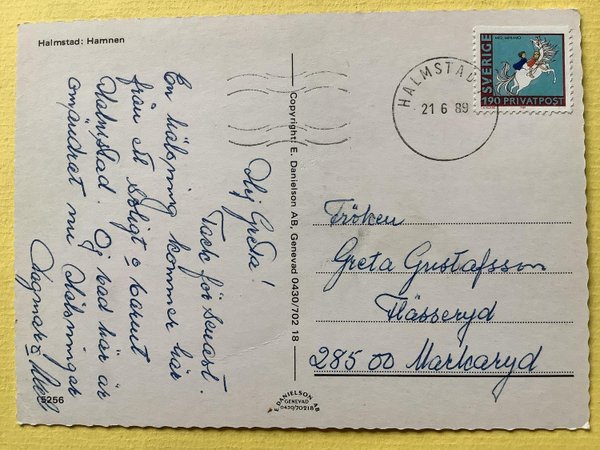 Halmstad: Hamnen
Hej Greta!
Tack för senast.
En hälsning kommer här
från ett soligt o varmt
Halmstad. Oj vad här är
omändrat nu Hälsningar
Dagmar o
5256
Copyright: E. Danielson AB, Genevad 0430/702 18
E DANIELSON AB
GENEVAD
0430/70218
HALMSTAD
21 6 89
SVERIGE
190 PRIVATPOST
Fröken
Greta Gustafsson
Hässeryd
285 00 Markaryd